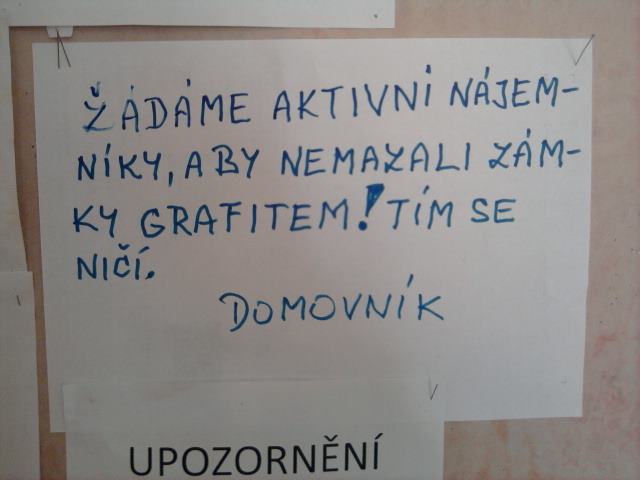 ŽÁDÁME AKTIVNÍ NÁJEM-
NÍKY, ABY NEMAZALI ZÁM-
KY GRAFITEM! TÍM SE
NIČÍ.
DOMOVNÍK
UPOZORNĚNÍ